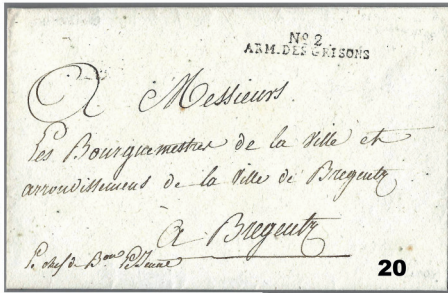 Nº 2
ARM. DES GRISONS
A Messieurs
Les Bourguemestres de la Ville et
arrondissemens de la Ville de Bregentz
à Bregentz
Le chef de Bon
20